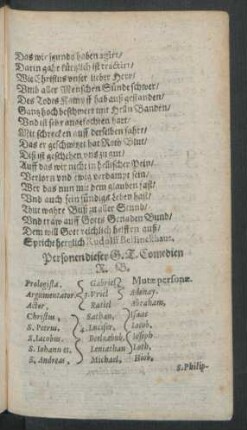 Das wir jtzundt haben agirt/
Darin gahr kürtzlich ist tractirt/
Wie Christus unser lieber Herr/
Umb aller Menschen Sünde schwer/
Des Todes Kampff hab außgestanden/
Gantz hoch beschwert mit Helln Banden/
Und ist sehr angefochten hart/
Mit schrecken auff derselben fahrt/
Das er geschwitzt hat Roth Blut/
Diß ist geschehen uns zu gut/
Auff das wir nicht in hellischer Pein/
Verlorn und ewig verdampt sein/
Wer das nun mit dem glauben fast/
Und auch sein sündigs Leben hast/
Thut wahre Buß zu aller Stund/
Und traw auff Gotts Genaden Bund/
Dem will Gott reichlich helffen auß/
Spricht hertzlich Rudolff Bellinckhaus.
Personen dieser G. T. Comedien
R. B.
Prologista. Gabriel Mutæ personæ.
Argumentator. Vriel Adonay.
Actor. Rafiel Abraham.
Christus, Sathan, Isaac
S. Petrus. Lucifer, Iacob.
S. Iacobus. Beelzebub, Ioseph
S. Iohannes. Leviathan Loth.
S. Andreas, Michael, Hiob.
S. Philip-